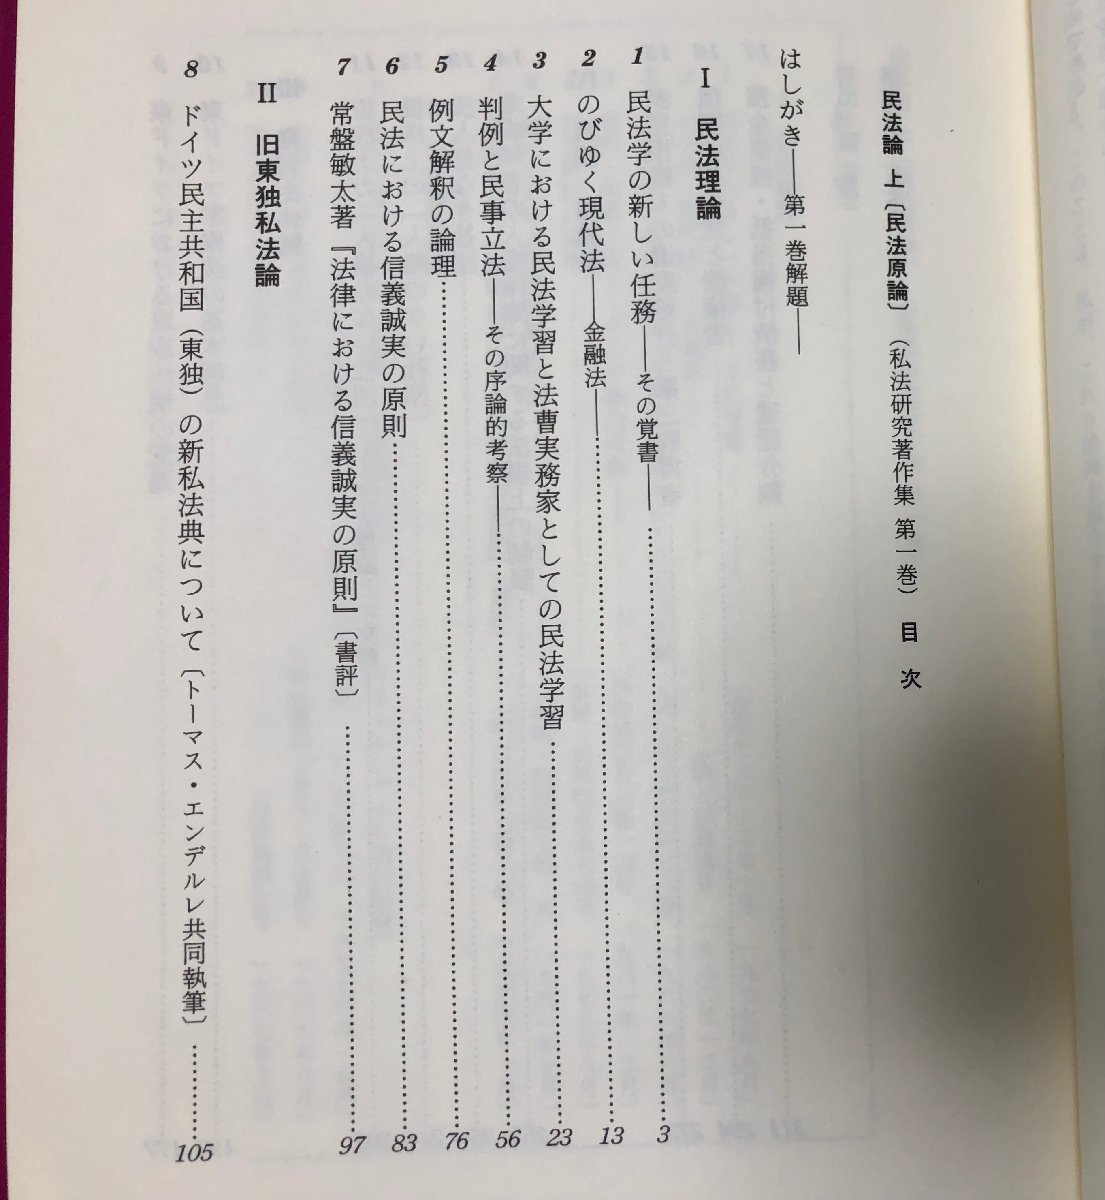 民法論 上〔民法原論〕（私法研究著作集 第一巻） 目 次
はしがき――第一巻解題――
Ⅰ 民法理論
1 民法学の新しい任務――その覚書――……3
2 のびゆく現代法――金融法――……13
3 大学における民法学習と法曹実務家としての民法学習……23
4 判例と民事立法――その序論的考察――……56
5 例文解釈の論理……76
6 民法における信義誠実の原則……83
7 常盤敏太著『法律における信義誠実の原則』〔書評〕……97
Ⅱ 旧東独私法論
8 ドイツ民主共和国（東独）の新私法典について〔トーマス・エンデルレ共同執筆〕……105